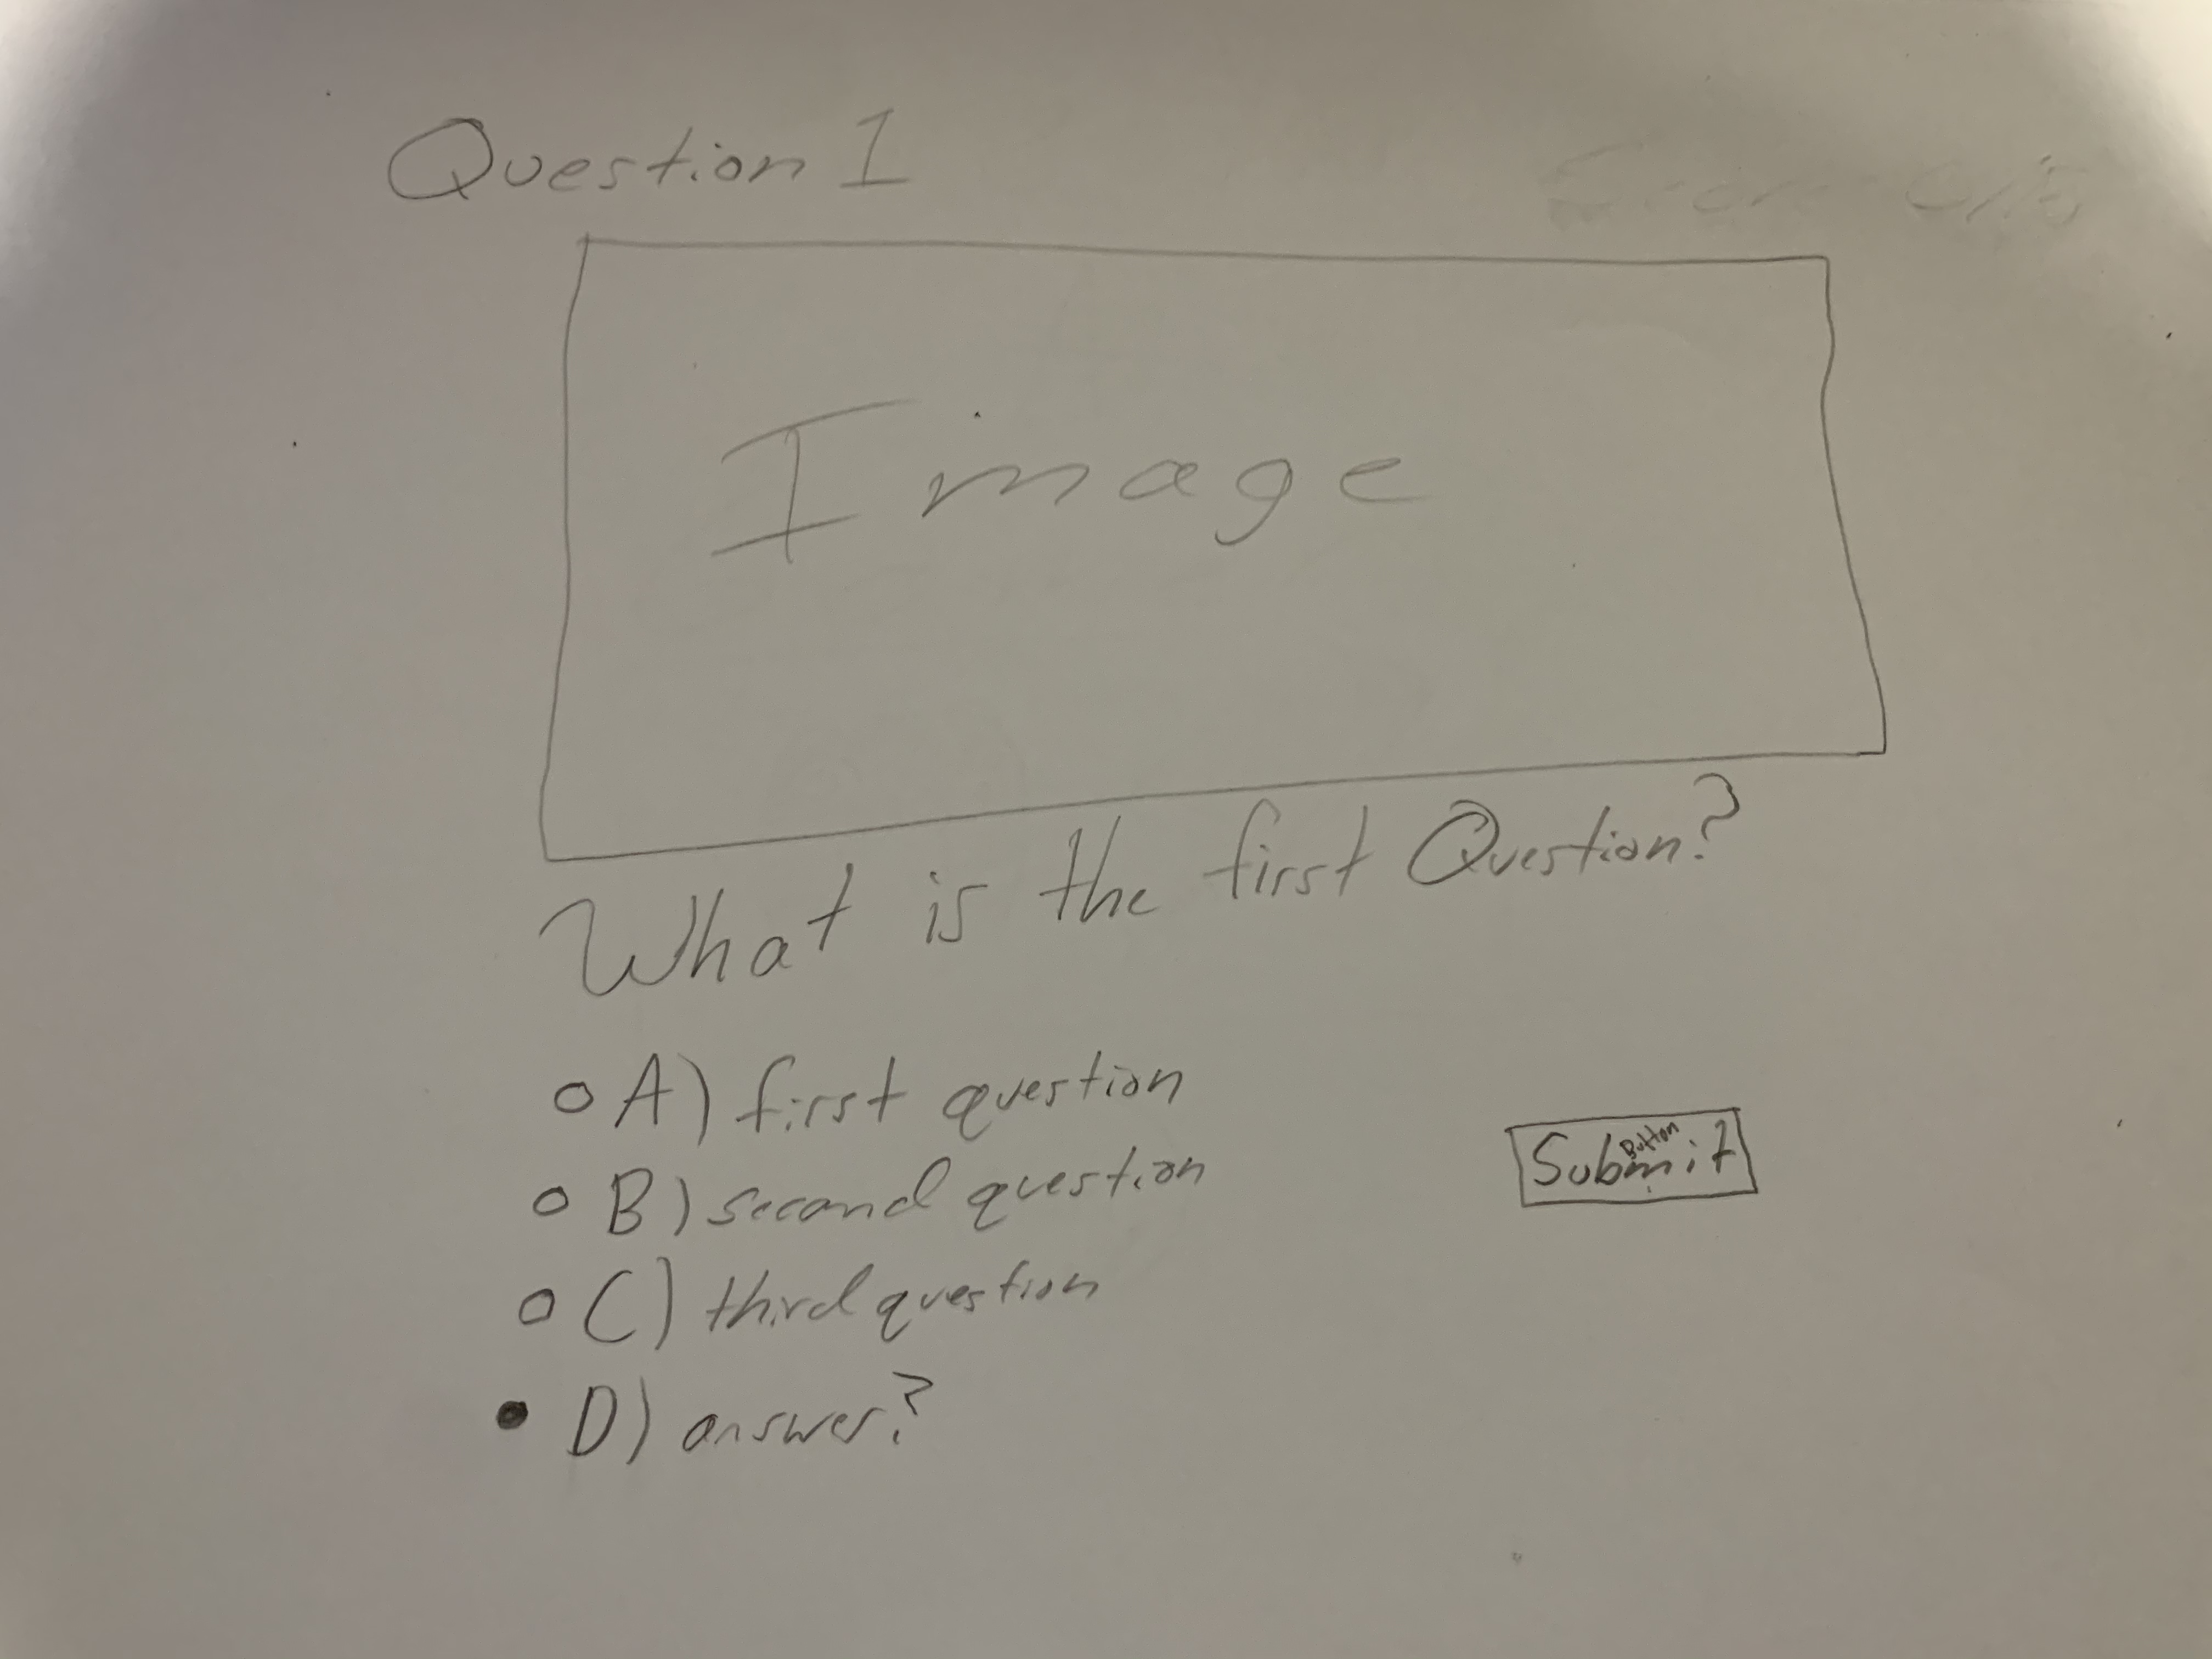 Question 1
Image
What is the first Question?
A) first question
B) second question
C) third question
D) answer?
Submit
Button